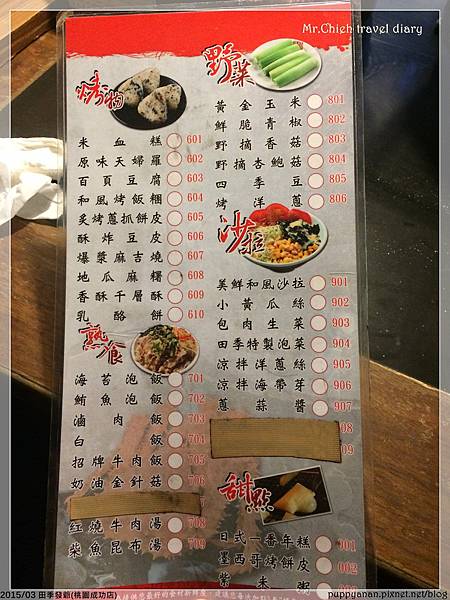 Mr.Chieh travel diary
烤物
米血糕 601
原味天婦羅 602
百頁豆腐 603
和風烤飯糰 604
炙烤蔥抓餅皮 605
酥炸豆皮 606
爆漿麻吉燒 607
地瓜麻糬 608
香酥千層酥 609
乳酪餅 610
熟食
海苔泡飯 701
鮪魚泡飯 702
滷肉飯 703
白飯 704
招牌牛肉飯 705
奶油金針菇 706
紅燒牛肉湯 708
柴魚昆布湯 709
野菜
黃金玉米 801
鮮脆青椒 802
野摘香菇 803
野摘杏鮑菇 804
四季豆 805
烤洋蔥 806
沙拉
美鮮和風沙拉 901
小黃瓜絲 902
包肉生菜 903
田季特製泡菜 904
涼拌洋蔥絲 905
涼拌海帶芽 906
蔥蒜醬 907
08
09
甜點
日式一番年糕 001
墨西哥烤餅皮 002
紫米粥
2015/03 田季發爺(桃園成功店)
puppyanan.pixnet.net/blog